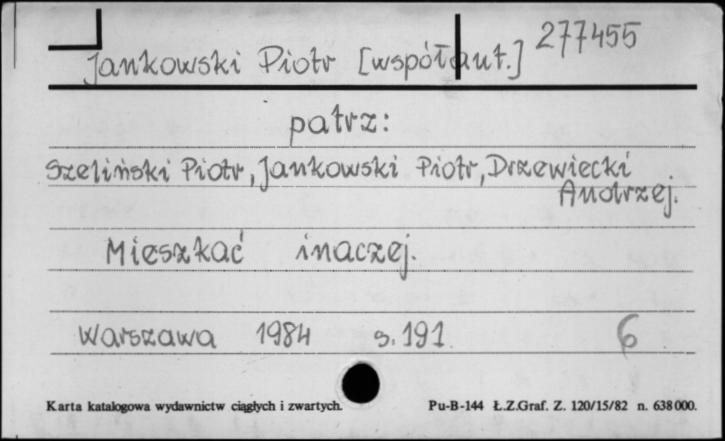 Jankowski Piotr [współaut.] 277455
patrz:
Szeliński Piotr, Jankowski Piotr, Drzewiecki
Andrzej.
Mieszkać inaczej.
Warszawa 1984 s. 191 6
Karta katalogowa wydawnictw ciągłych i zwartych. Pu-B-144 Ł.Z.Graf. Z. 120/15/82 n. 638000.